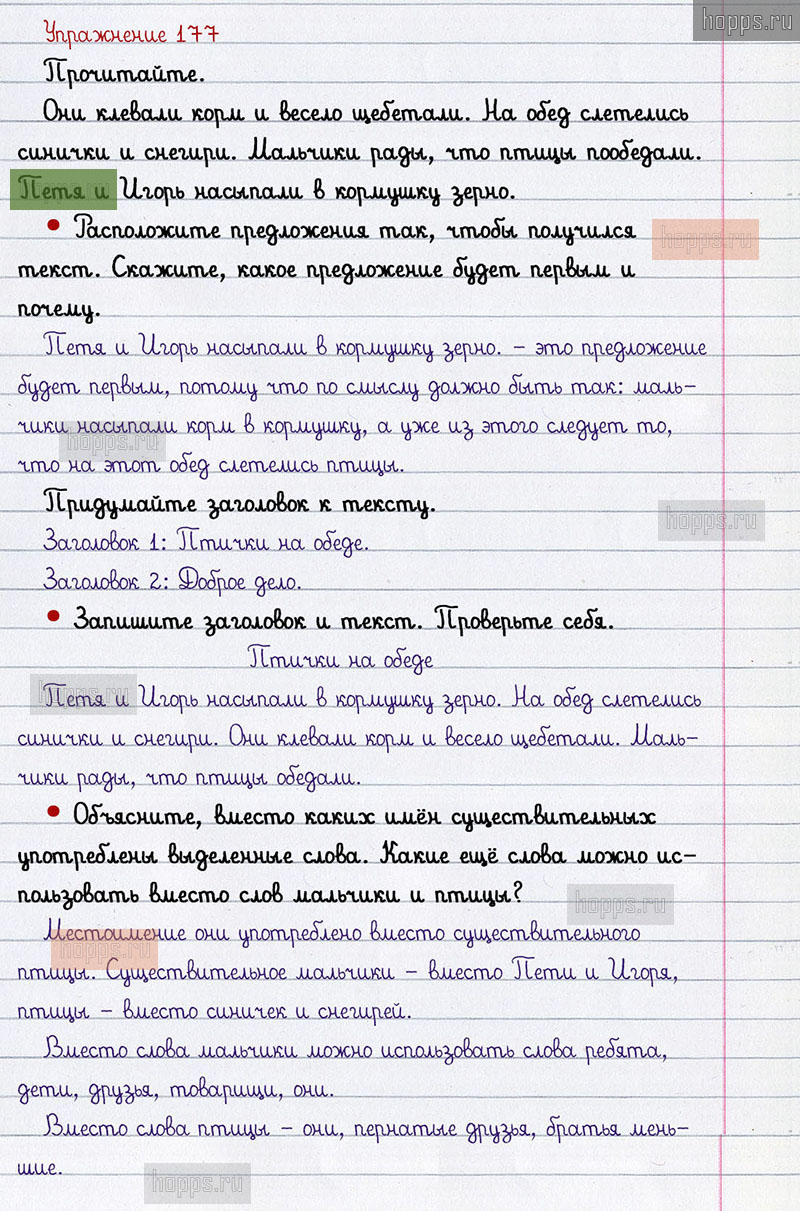 hopps.ru
Упражнение 177
Прочитайте.
Они клевали корм и весело щебетали. На обед слетелись
синички и снегири. Мальчики рады, что птицы пообедали.
Петя и Игорь насыпали в кормушку зерно.
• Расположите предложения так, чтобы получился
hopps.ru
текст. Скажите, какое предложение будет первым и
почему.
Петя и Игорь насыпали в кормушку зерно. – это предложение
будет первым, потому что по смыслу должно быть так: маль-
чики насыпали корм в кормушку, а уже из этого следует то,
hopps.ru
что на этот обед слетелись птицы.
Придумайте заголовок к тексту.
hopps.ru
Заголовок 1: Птички на обеде.
Заголовок 2: Доброе дело.
• Запишите заголовок и текст. Проверьте себя.
Птички на обеде
hopps.ru
Петя и Игорь насыпали в кормушку зерно. На обед слетелись
синички и снегири. Они клевали корм и весело щебетали. Маль-
чики рады, что птицы обедали.
• Объясните, вместо каких имён существительных
употреблены выделенные слова. Какие ещё слова можно ис-
пользовать вместо слов мальчики и птицы?
hopps.ru
Местоимение они употреблено вместо существительного
hopps.ru
птицы. Существительное мальчики – вместо Пети и Игоря,
птицы – вместо синичек и снегирей.
Вместо слова мальчики можно использовать слова ребята,
дети, друзья, товарищи, они.
Вместо слова птицы – они, пернатые друзья, братья мень-
шие.
hopps.ru